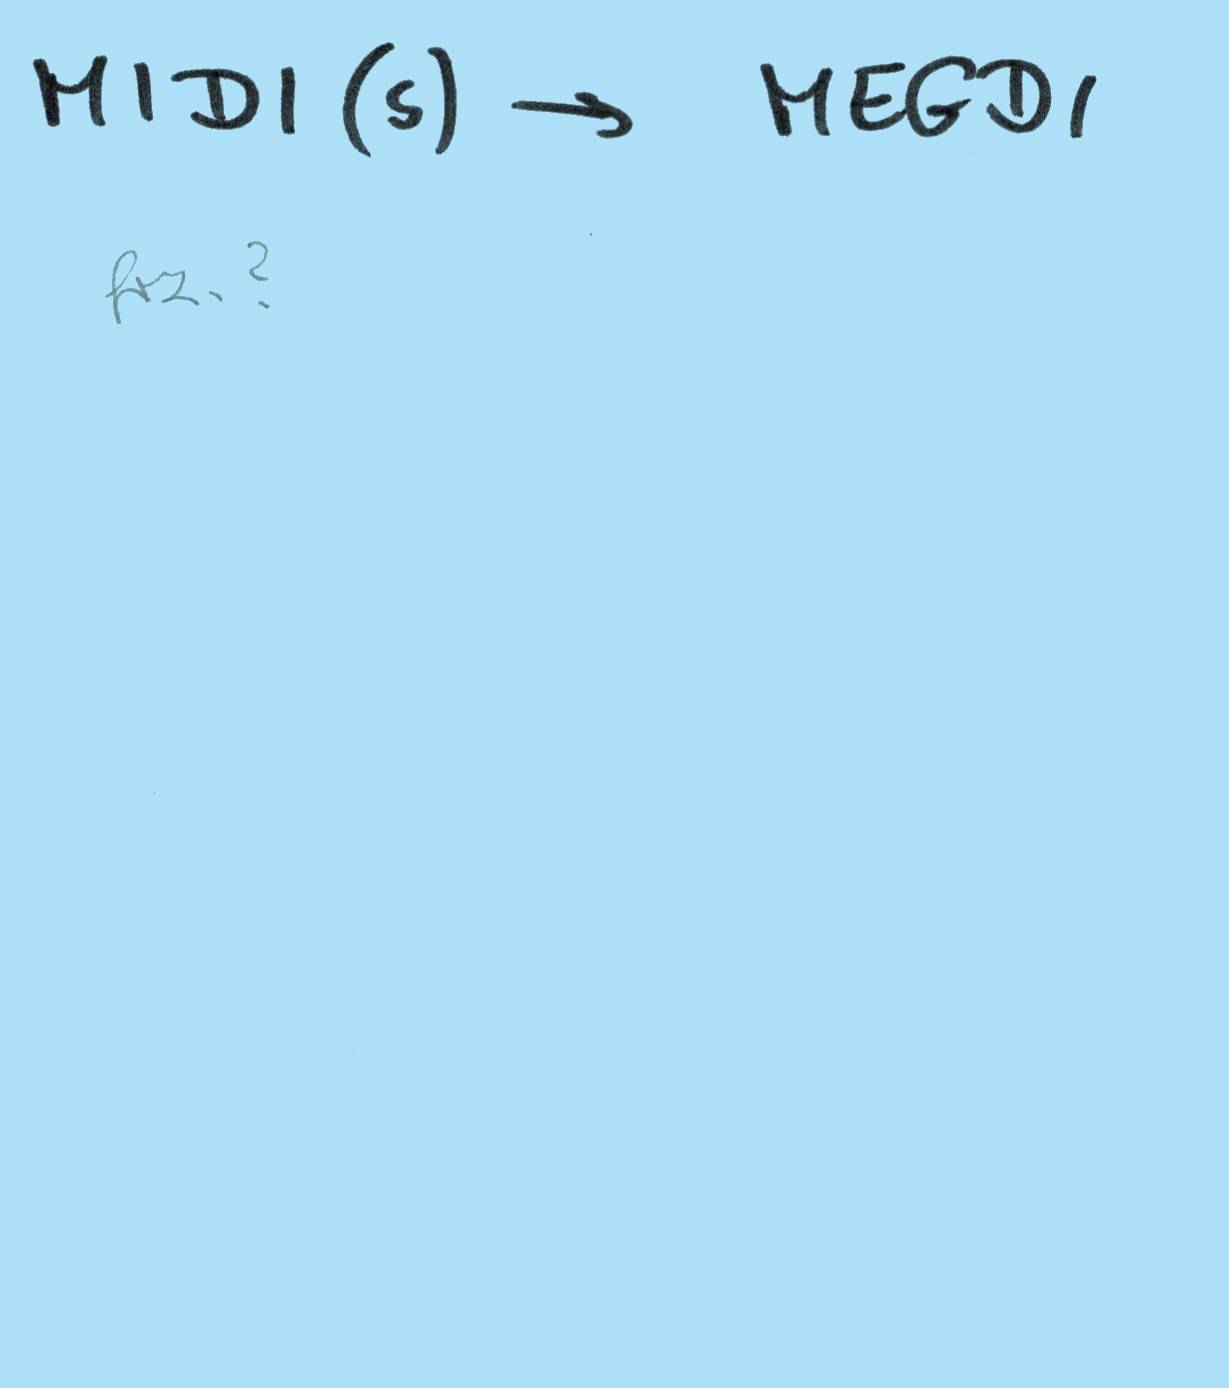 MIDI(s) → MEGDI
frz. ?